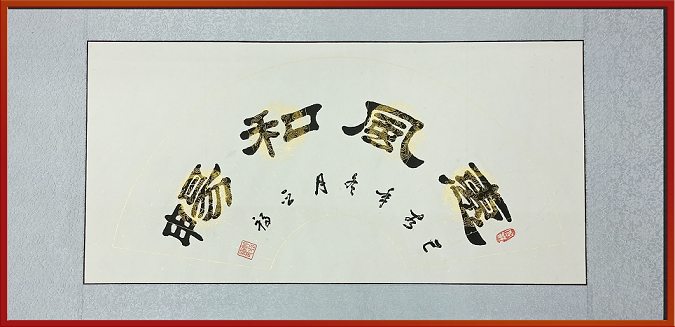 惠風和暢
己亥年冬月
福